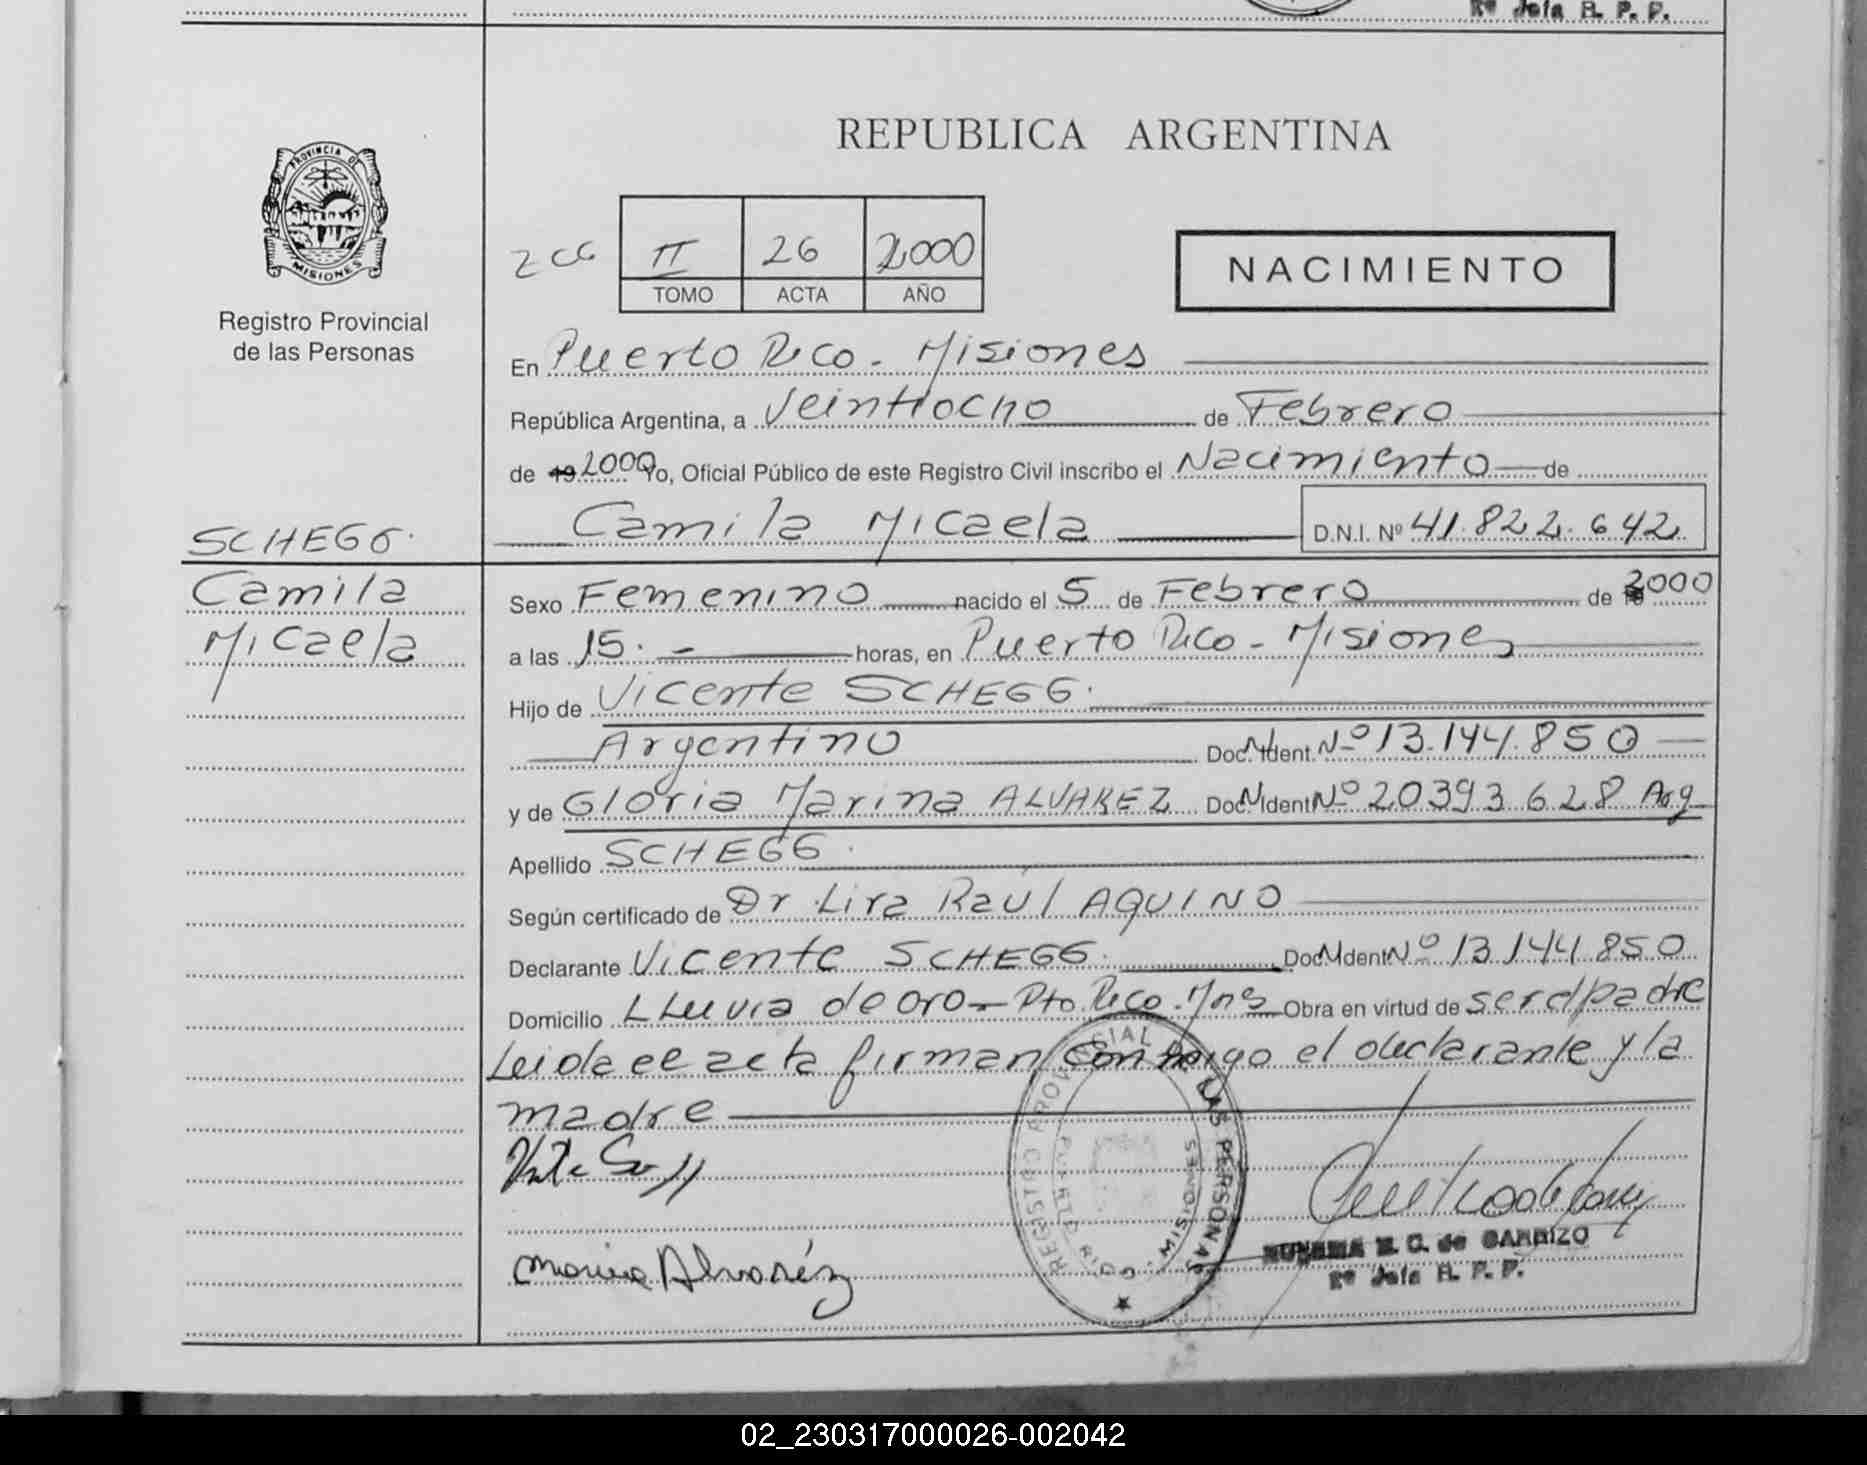 2ª Jefa R. P. P.
REPUBLICA ARGENTINA
PROVINCIA DE
MISIONES
II 26 2000
TOMO ACTA AÑO
NACIMIENTO
Registro Provincial
de las Personas
En Puerto Rico - Misiones
República Argentina, a Veintiocho de Febrero
de 19 2000 Yo, Oficial Público de este Registro Civil inscribo el Nacimiento de
SCHEGG. Camila Micaela D.N.I. Nº 41.822.642
Camila
Micaela
Sexo Femenino nacido el 5 de Febrero de 2000
a las 15. - horas, en Puerto Rico - Misiones
Hijo de Vicente SCHEGG.
Argentino Doc. Ident. Nº 13.144.850
y de Gloria Marina ALVAREZ Doc. Ident Nº 20393628 Arg
Apellido SCHEGG.
Según certificado de Dr Lira Raúl AQUINO
Declarante Vicente SCHEGG. Doc. Ident Nº 13.144.850
Domicilio LLuvia de oro - Pto. Rico. Mnes Obra en virtud de ser el padre
Leida el acta firman conmigo el declarante y la
madre
REGISTRO PROVINCIAL DE LAS PERSONAS
MISIONES
Alvaréz
E. C. de CARRIZO
2ª Jefa R. P. P.
02_230317000026-002042